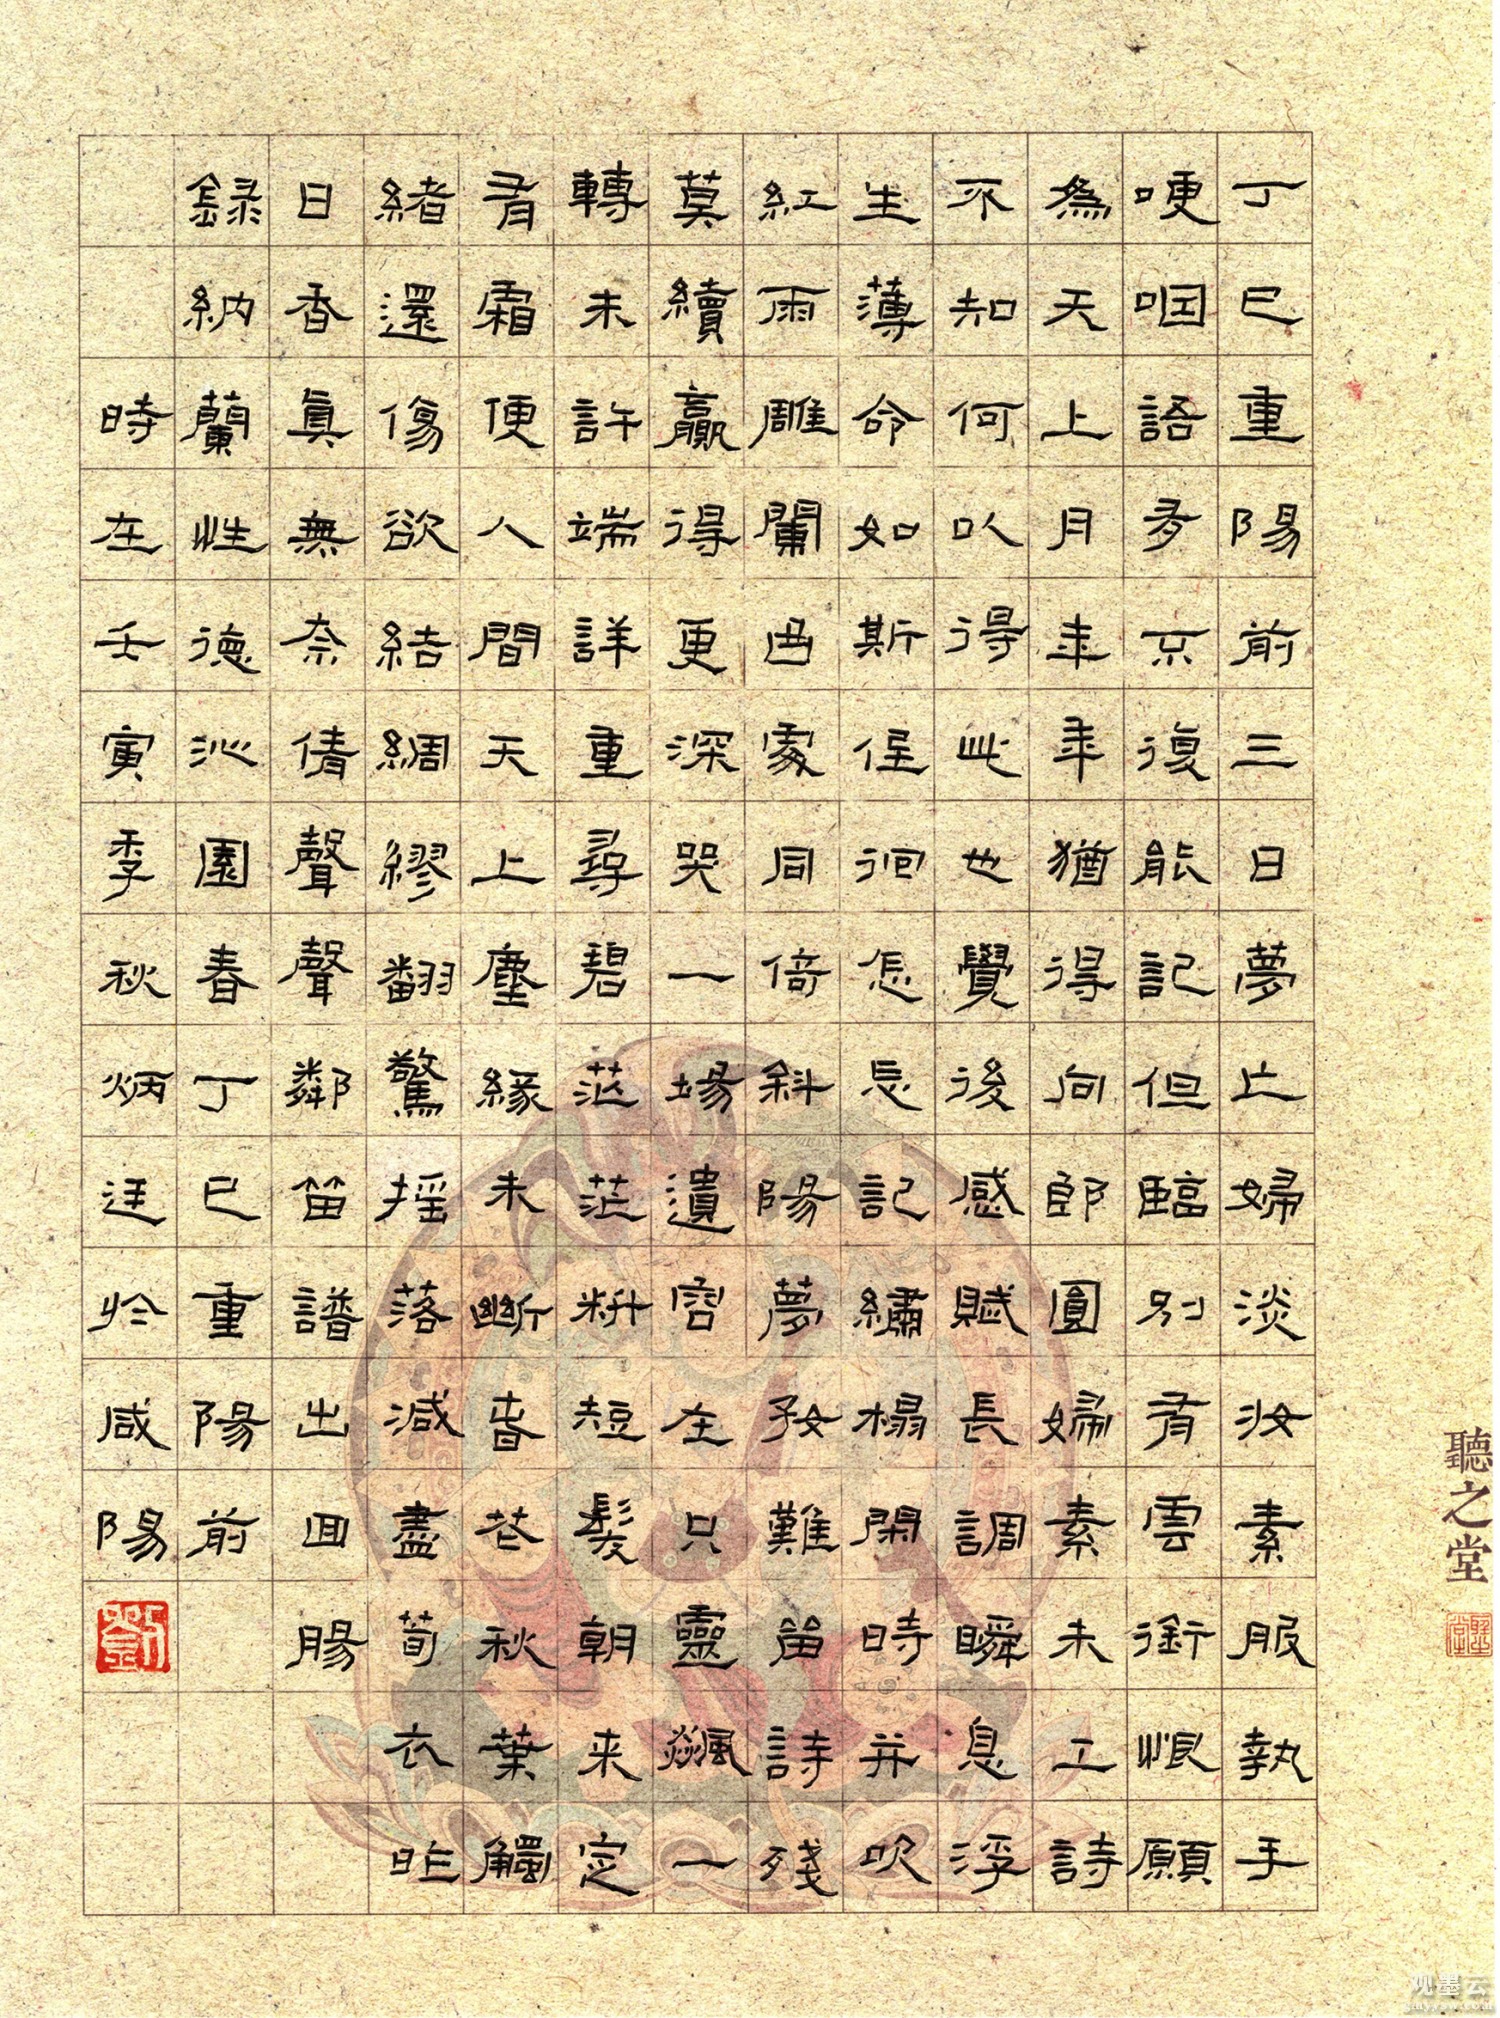 丁巳重陽前三日夢亡婦淡妝素服執手
哽咽語多不復能記但臨別有雲銜恨願
為天上月年年猶得向郎圓婦素未工詩
不知何以得此也覺後感賦長調瞬息浮
生薄命如斯低徊怎忘記繡榻閑時并吹
紅雨雕闌曲處同倚斜陽夢好難留詩殘
莫續贏得更深哭一場遺容在只靈飆一
轉未許端詳重尋碧茫茫料短髮朝来定
有霜便人間天上塵緣未斷春花秋葉觸
緒還傷欲結綢繆翻驚搖落減盡荀衣昨
日香真無奈倩聲聲鄰笛譜出回腸
錄納蘭性德沁園春丁巳重陽前
時在壬寅季秋炳廷於咸陽
劉
聽之堂
观墨云